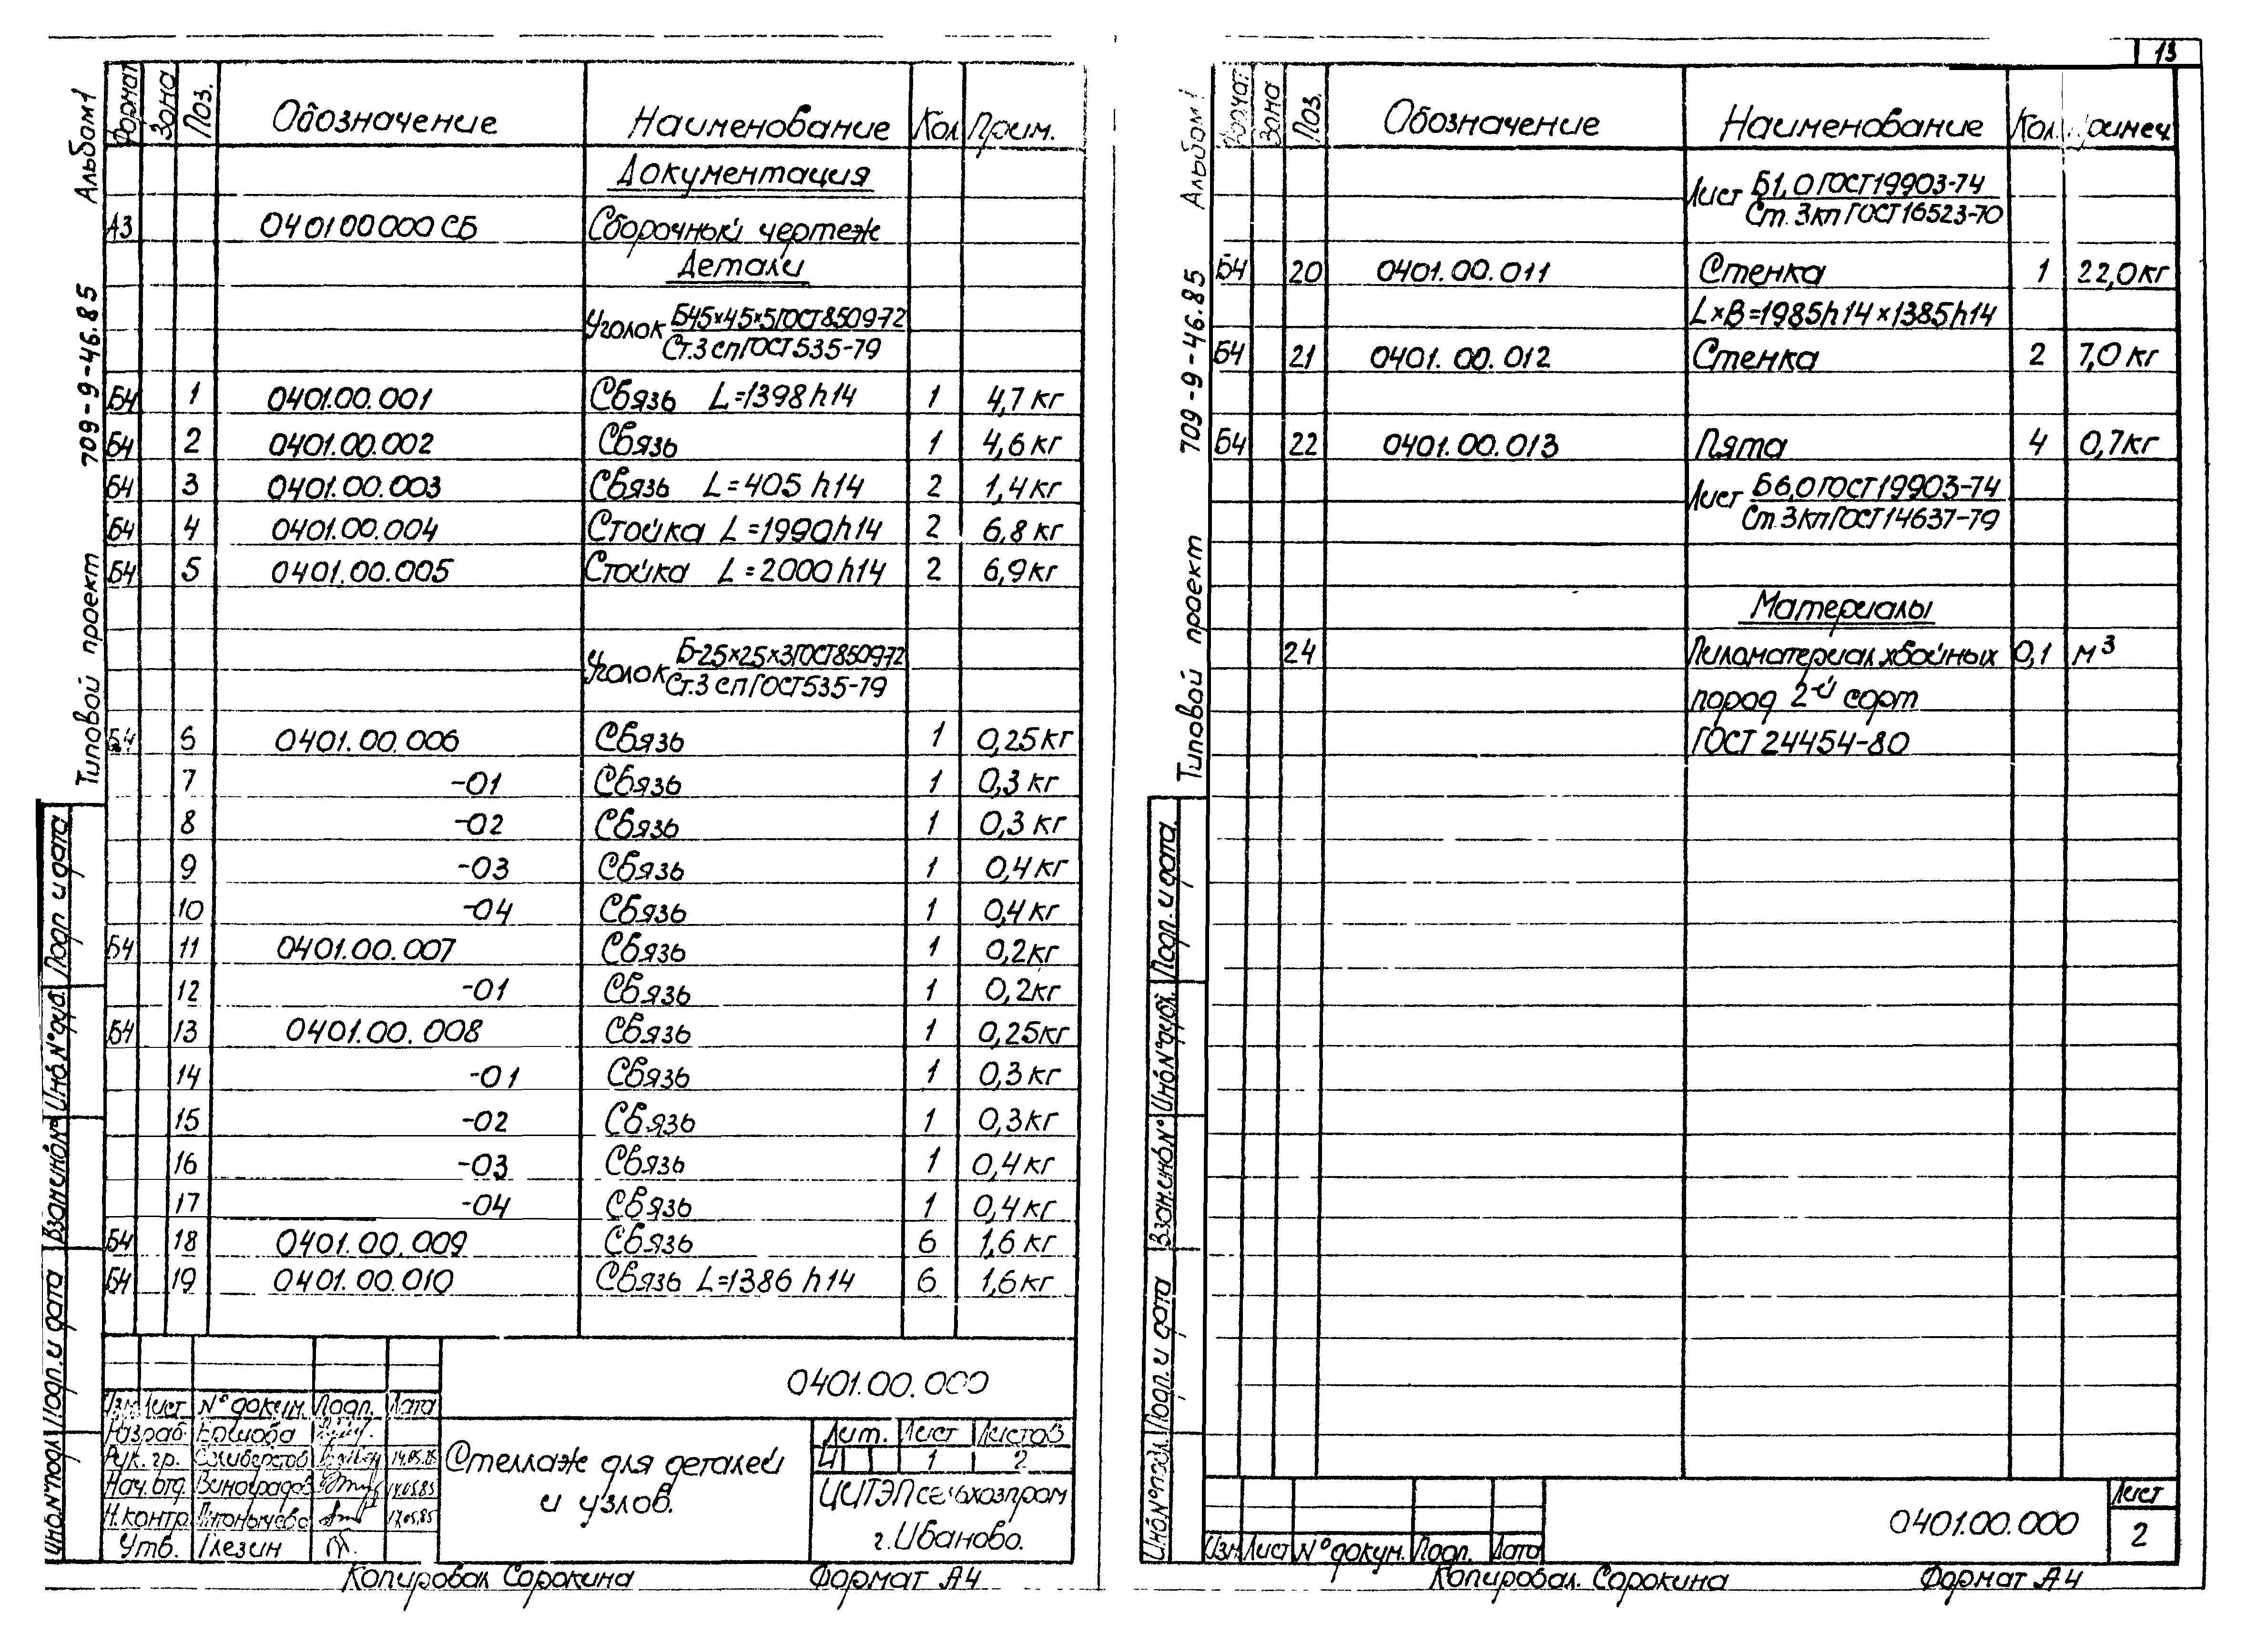 Альбом 1
709-9-46.85
Типовой проект
Формат Зона Поз. Обозначение Наименование Кол. Прим.
Документация
А3 0401 00 000 СБ Сборочный чертеж
Детали
Уголок Б45×45×5 ГОСТ 8509-72
Ст.3 сп ГОСТ 535-79
Б4 1 0401.00.001 Связь L=1398 h14 1 4,7 кг
Б4 2 0401.00.002 Связь 1 4,6 кг
Б4 3 0401.00.003 Связь L=405 h14 2 1,4 кг
Б4 4 0401.00.004 Стойка L=1990 h14 2 6,8 кг
Б4 5 0401.00.005 Стойка L=2000 h14 2 6,9 кг
Уголок Б-25×25×3 ГОСТ 8509-72
Ст.3 сп ГОСТ 535-79
Б4 6 0401.00.006 Связь 1 0,25 кг
7 -01 Связь 1 0,3 кг
8 -02 Связь 1 0,3 кг
9 -03 Связь 1 0,4 кг
10 -04 Связь 1 0,4 кг
Б4 11 0401.00.007 Связь 1 0,2 кг
12 -01 Связь 1 0,2 кг
Б4 13 0401.00.008 Связь 1 0,25 кг
14 -01 Связь 1 0,3 кг
15 -02 Связь 1 0,3 кг
16 -03 Связь 1 0,4 кг
17 -04 Связь 1 0,4 кг
Б4 18 0401.00.009 Связь 6 1,6 кг
Б4 19 0401.00.010 Связь L=1386 h14 6 1,6 кг
Инв.№ подл. Подп. и дата Взам.инв.№ Инв.№ дубл. Подп. и дата
0401.00.000
Изм. Лист № докум. Подп. Дата
Разраб. Ершова
Рук. гр. Селиверстов 14.05.85
Нач. отд. Виноградов 14.05.85
Н. контр. 17.05.85
Утв. Глезин
Стеллаж для деталей
и узлов.
Лит. Лист Листов
И 1 2
ЦИТЭПсельхозпром
г. Иваново.
Копировал Сорокина Формат А4
13
Альбом 1
709-9-46.85
Типовой проект
Формат Зона Поз. Обозначение Наименование Кол. Примеч.
Лист Б1,0 ГОСТ 19903-74
Ст. 3кп ГОСТ 16523-70
Б4 20 0401.00.011 Стенка 1 22,0 кг
L×B=1985h14×1385h14
Б4 21 0401.00.012 Стенка 2 7,0 кг
Б4 22 0401.00.013 Пята 4 0,7 кг
Лист Б6,0 ГОСТ 19903-74
Ст. 3кп ГОСТ 14637-79
Материалы
24 Пиломатериал хвойных 0,1 м³
пород 2-й сорт
ГОСТ 24454-80
Инв.№ подл. Подп. и дата Взам.инв.№ Инв.№ дубл. Подп. и дата
Изм. Лист № докум. Подп. Дата
0401.00.000
Лист
2
Копировал. Сорокина Формат А4